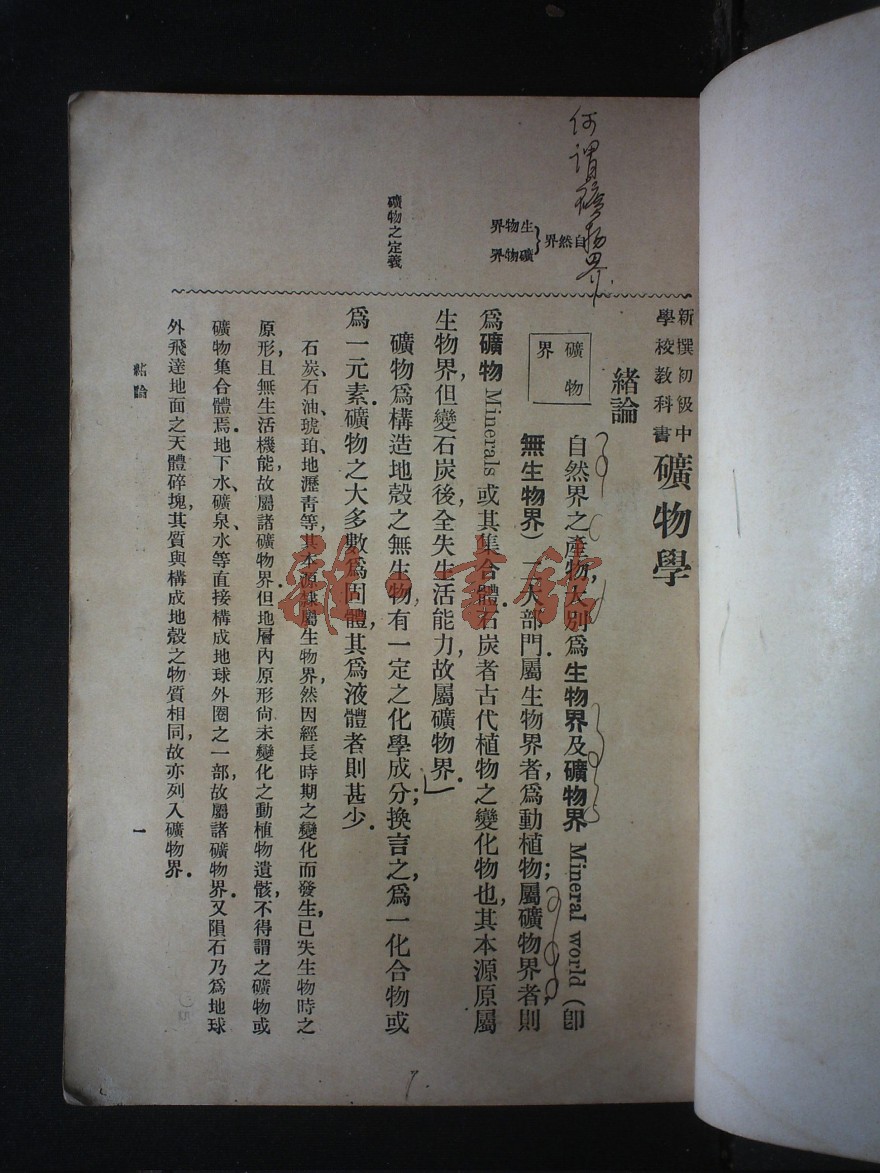 何謂礦物界
自然界
生物界
礦物界
礦物之定義
新撰初級中
學校教科書
礦物學
緒論
礦物
界
自然界之產物,大別爲生物界及礦物界 Mineral world (卽
無生物界) 二大部門.屬生物界者,爲動植物;屬礦物界者則
爲礦物 Minerals 或其集合體.石炭者古代植物之變化物也,其本源原屬
生物界,但變石炭後,全失生活能力,故屬礦物界.
礦物爲構造地殼之無生物,有一定之化學成分;換言之,爲一化合物或
爲一元素.礦物之大多數爲固體,其爲液體者則甚少.
石炭、石油、琥珀、地瀝青等,其本源隸屬生物界,然因經長時期之變化而發生,已失生物時之
原形,且無生活機能,故屬諸礦物界.但地層內原形尚未變化之動植物遺骸,不得謂之礦物或
礦物集合體焉.地下水、礦泉、水等直接構成地球外圈之一部,故屬諸礦物界.又隕石乃爲地球
外飛達地面之天體碎塊,其質與構成地殼之物質相同,故亦列入礦物界.
緒論
一
雜·書館